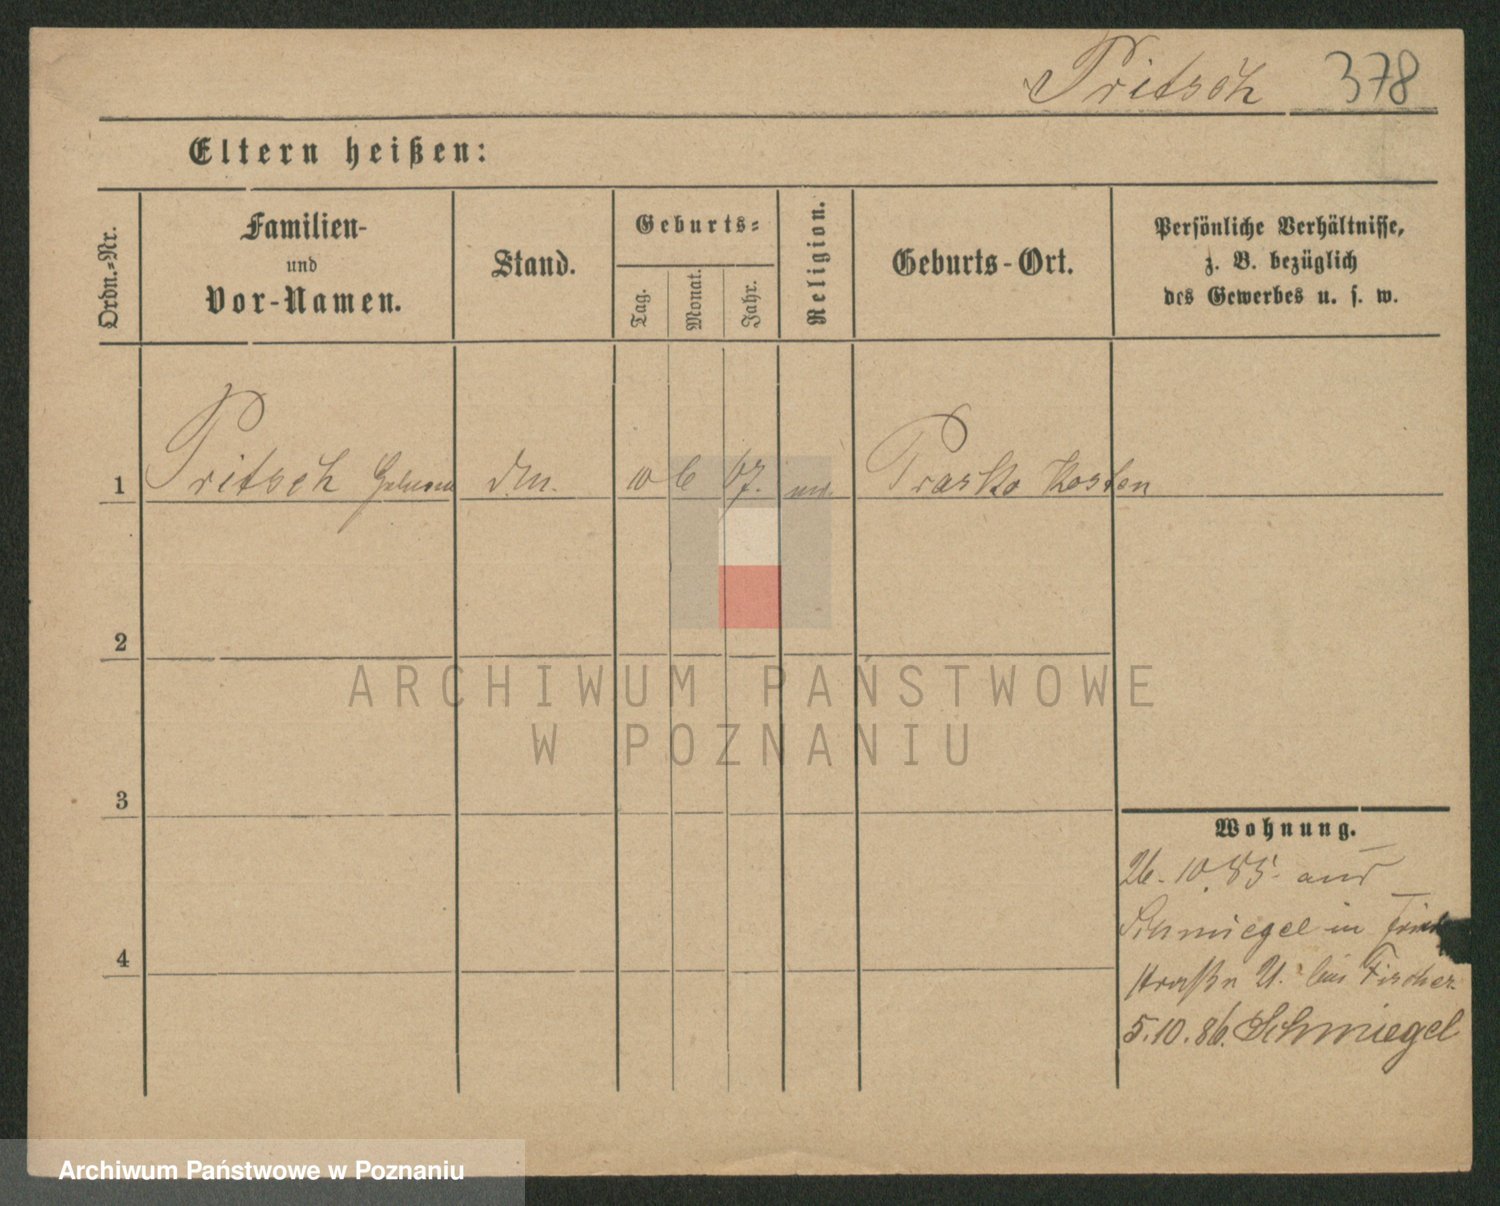 Pritsch 378
Eltern heißen:
Ordn.-Nr.
Familien-
und
Vor-Namen.
Stand.
Geburts-
Tag.
Monat.
Jahr.
Religion.
Geburts-Ort.
Persönliche Verhältnisse,
z. B. bezüglich
des Gewerbes u. s. w.
1 Pritsch 10 6 67. Kosten
2
3
4
Wohnung.
26. 10. 85. aus
Schmiegel in
straße 21. bei Fischer.
5.10.86. Schmiegel
ARCHIWUM PAŃSTWOWE
W POZNANIU
Archiwum Państwowe w Poznaniu